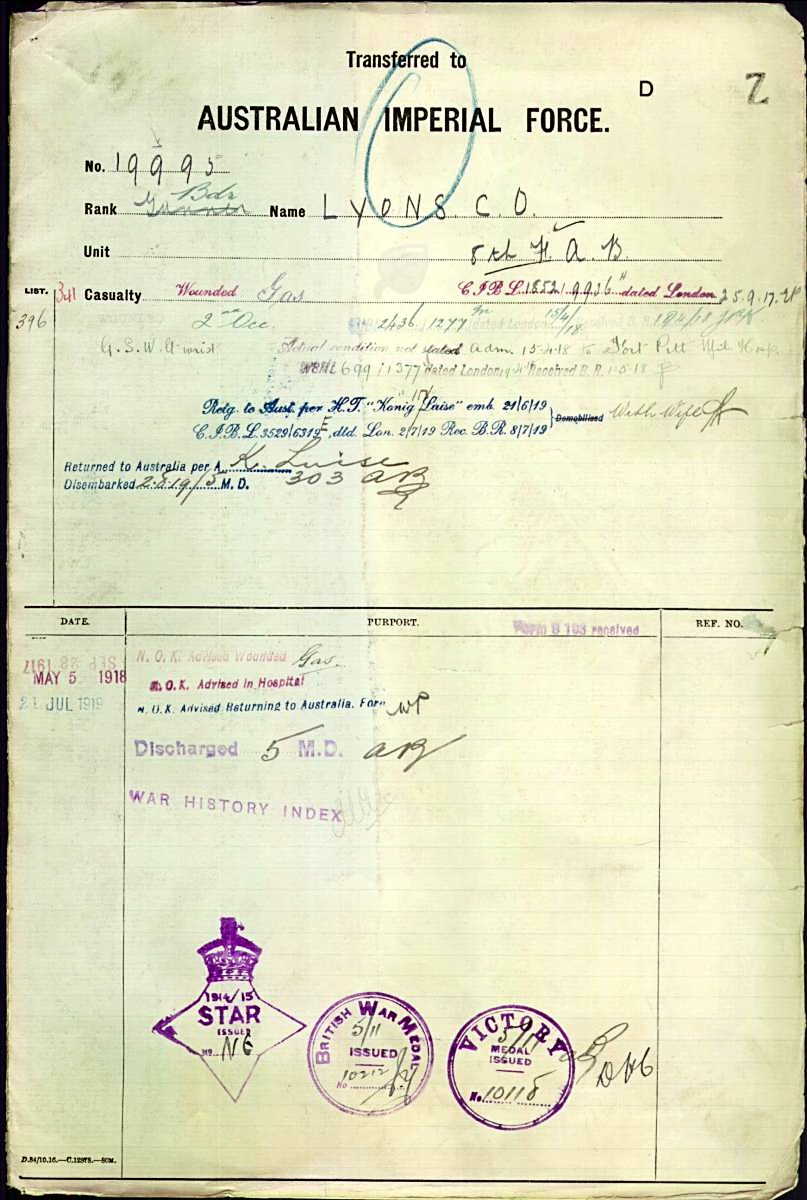 Transferred to
D
Z
AUSTRALIAN IMPERIAL FORCE.
No. 19995
Rank Gunner Bdr Name LYONS. C. O.
Unit 8th F. A. B.
LIST. 341 Casualty Wounded Gas C.I.B L. 1852/9936 dated London 25.9.17.
396 2nd Occ. 2436/1277 dated London 15/4/18 19/4/18
G.S.W. Actual condition not stated adm. 15-4-18 to Fort Pitt Mil. Hosp.
699/1377 dated London Received B.R. 1-5-18
Retg. to Aust. per H.T. "Konig Luise" emb. 21/6/19
C.I.B L. 3529/6312 , dtd. Lon. 2/7/19 Rec. B.R. 8/7/19 Demobilised With Wife
Returned to Australia per A. K. Luise
Disembarked 2.8.19/5 M. D. 303 AB
DATE. PURPORT. REF. NO.
Form B 103 received
SEP 28 1917 N. O. K. Advised Wounded Gas.
MAY 5 1918 N.O.K. Advised in Hospital
21 JUL 1919 N.O.K. Advised Returning to Australia. Form WP
Discharged 5 M.D. AB
WAR HISTORY INDEX
1914/15
STAR
ISSUED
No. NE
BRITISH WAR MEDAL
5/11
ISSUED
No 10212
VICTORY
5/11
MEDAL
ISSUED
No. 10118
D.84/10.16.—C.12978.—50M.